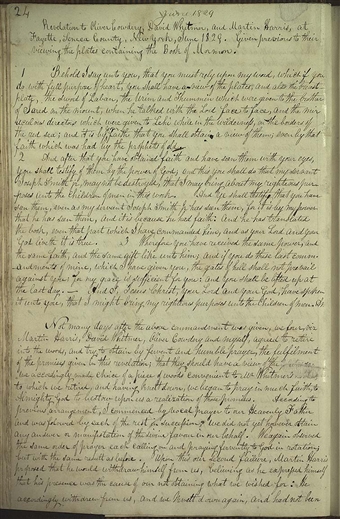 24
June 1829
Revelation to Oliver Cowdery, David Whitmer, and Martin Harris, at
Fayette, Seneca County, New York, June 1829. Given previous to their
viewing the plates containing the Book of Mormon.
1 Behold I say unto you, that you must rely upon my word, which if you
do with full purpose of heart, you shall have a view of the plates, and also the breast
plate, the sword of Laban, the Urim and Thummim which were given to the brother
of Jared on the mount, when he talked with the Lord face to face, and the mir-
aculous directors which were given to Lehi while in the wilderness, on the borders of
the red sea; and it is by faith that you shall obtain a view of them, even by that
faith which was had by the prophets of old.
2 And after that you have obtained faith and have seen them with your eyes,
you shall testify of them by the power of God; and this you shall do that my servant
Joseph Smith Jr. may not be destroyed, that I may bring about my righteous pur-
poses unto the children of men in this work. And ye shall testify that you have
seen them, even as my servant Joseph Smith Jr. has seen them, for it is by my power
that he has seen them, and it is because he had faith: And he has translated
the book, even that part which I have commanded him, and as your Lord and your
God liveth it is true. 3 Wherefore you have received the same power, and
the same faith, and the same gift like unto him; and if you do these last com-
mandments of mine, which I have given you, the gates of hell shall not prevail
against you; for my grace is sufficient for you: and you shall be lifted up at
the last day. And I, Jesus Christ, your Lord and your God, have spoken
it unto you, that I might bring my righteous purposes unto the children of men.
Not many days after the above commandment was given, we four, viz
Martin Harris, David Whitmer, Oliver Cowdery and myself, agreed to retire
into the woods, and try to obtain by fervent and humble prayer, the fulfilment
of the promises given in this revelation; that they should have a view of the plates
we accordingly made choice of a piece of woods convenient to Mr Whitmer's
to which we retired, and having knelt down, we began to pray in much faith, to
Almighty God to bestow upon us a realization of these promises. According to
previous arrangement, I commenced, by vocal prayer to our Heavenly Father
and was followed by each of the rest in succession; we did not yet however obtain
any answer, or manifestation of the divine favour in our behalf. We again observed
the same order of prayer each calling on, and praying fervently to God in rotation;
but with the same result as before. Upon this our second failure, Martin Harris
proposed that he would withdraw himself from us, believing as he expressed himself
that his presence was the cause of our not obtaining what we wished for: He
accordingly withdrew from us, and we knelt down again, and had not been